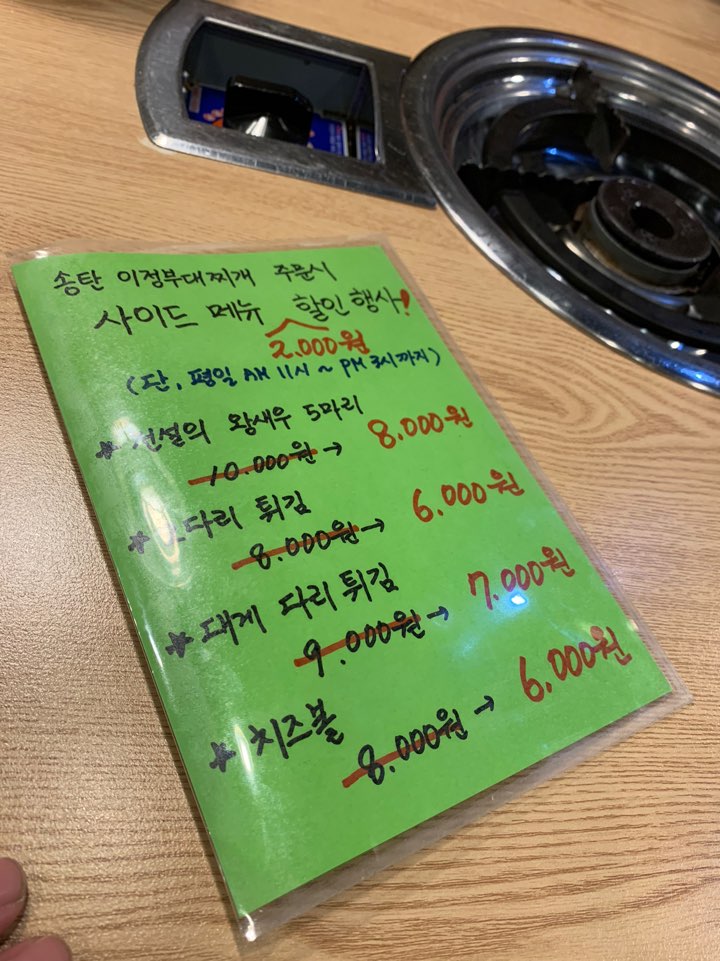 송탄 이정부대찌개 주문시
사이드 메뉴 할인 행사!
2.000원
(단, 평일 AM 11시 ~ PM 3시까지)
★ 전설의 왕새우 5마리
10.000원 → 8.000원
★ 다리 튀김
8.000원 → 6.000원
★ 대게 다리 튀김
9.000원 → 7.000원
★ 치즈볼
8.000원 → 6.000원